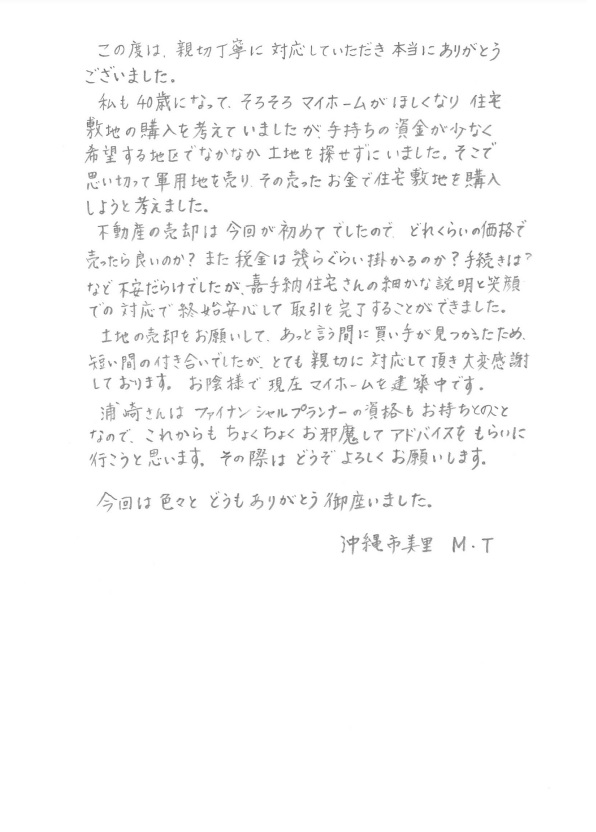 この度は、親切丁寧に対応していただき本当にありがとう
ございました。
私も40歳になって、そろそろマイホームがほしくなり住宅
敷地の購入を考えていましたが、手持ちの資金が少なく
希望する地区でなかなか土地を探せずにいました。そこで
思い切って軍用地を売り、その売ったお金で住宅敷地を購入
しようと考えました。
不動産の売却は今回が初めてでしたので、どれくらいの価格で
売ったら良いのか?また税金は幾らぐらい掛かるのか?手続きは?
など不安だらけでしたが、嘉手納住宅さんの細かな説明と笑顔
での対応で終始安心して取引を完了することができました。
土地の売却をお願いして、あっと言う間に買い手が見つかったため、
短い間の付き合いでしたが、とても親切に対応して頂き大変感謝
しております。お陰様で現在マイホームを建築中です。
浦崎さんはファイナンシャルプランナーの資格もお持ちとのこと
なので、これからもちょくちょくお邪魔してアドバイスをもらいに
行こうと思います。その際はどうぞよろしくお願いします。
今回は色々とどうもありがとう御座いました。
沖縄市美里 M・T